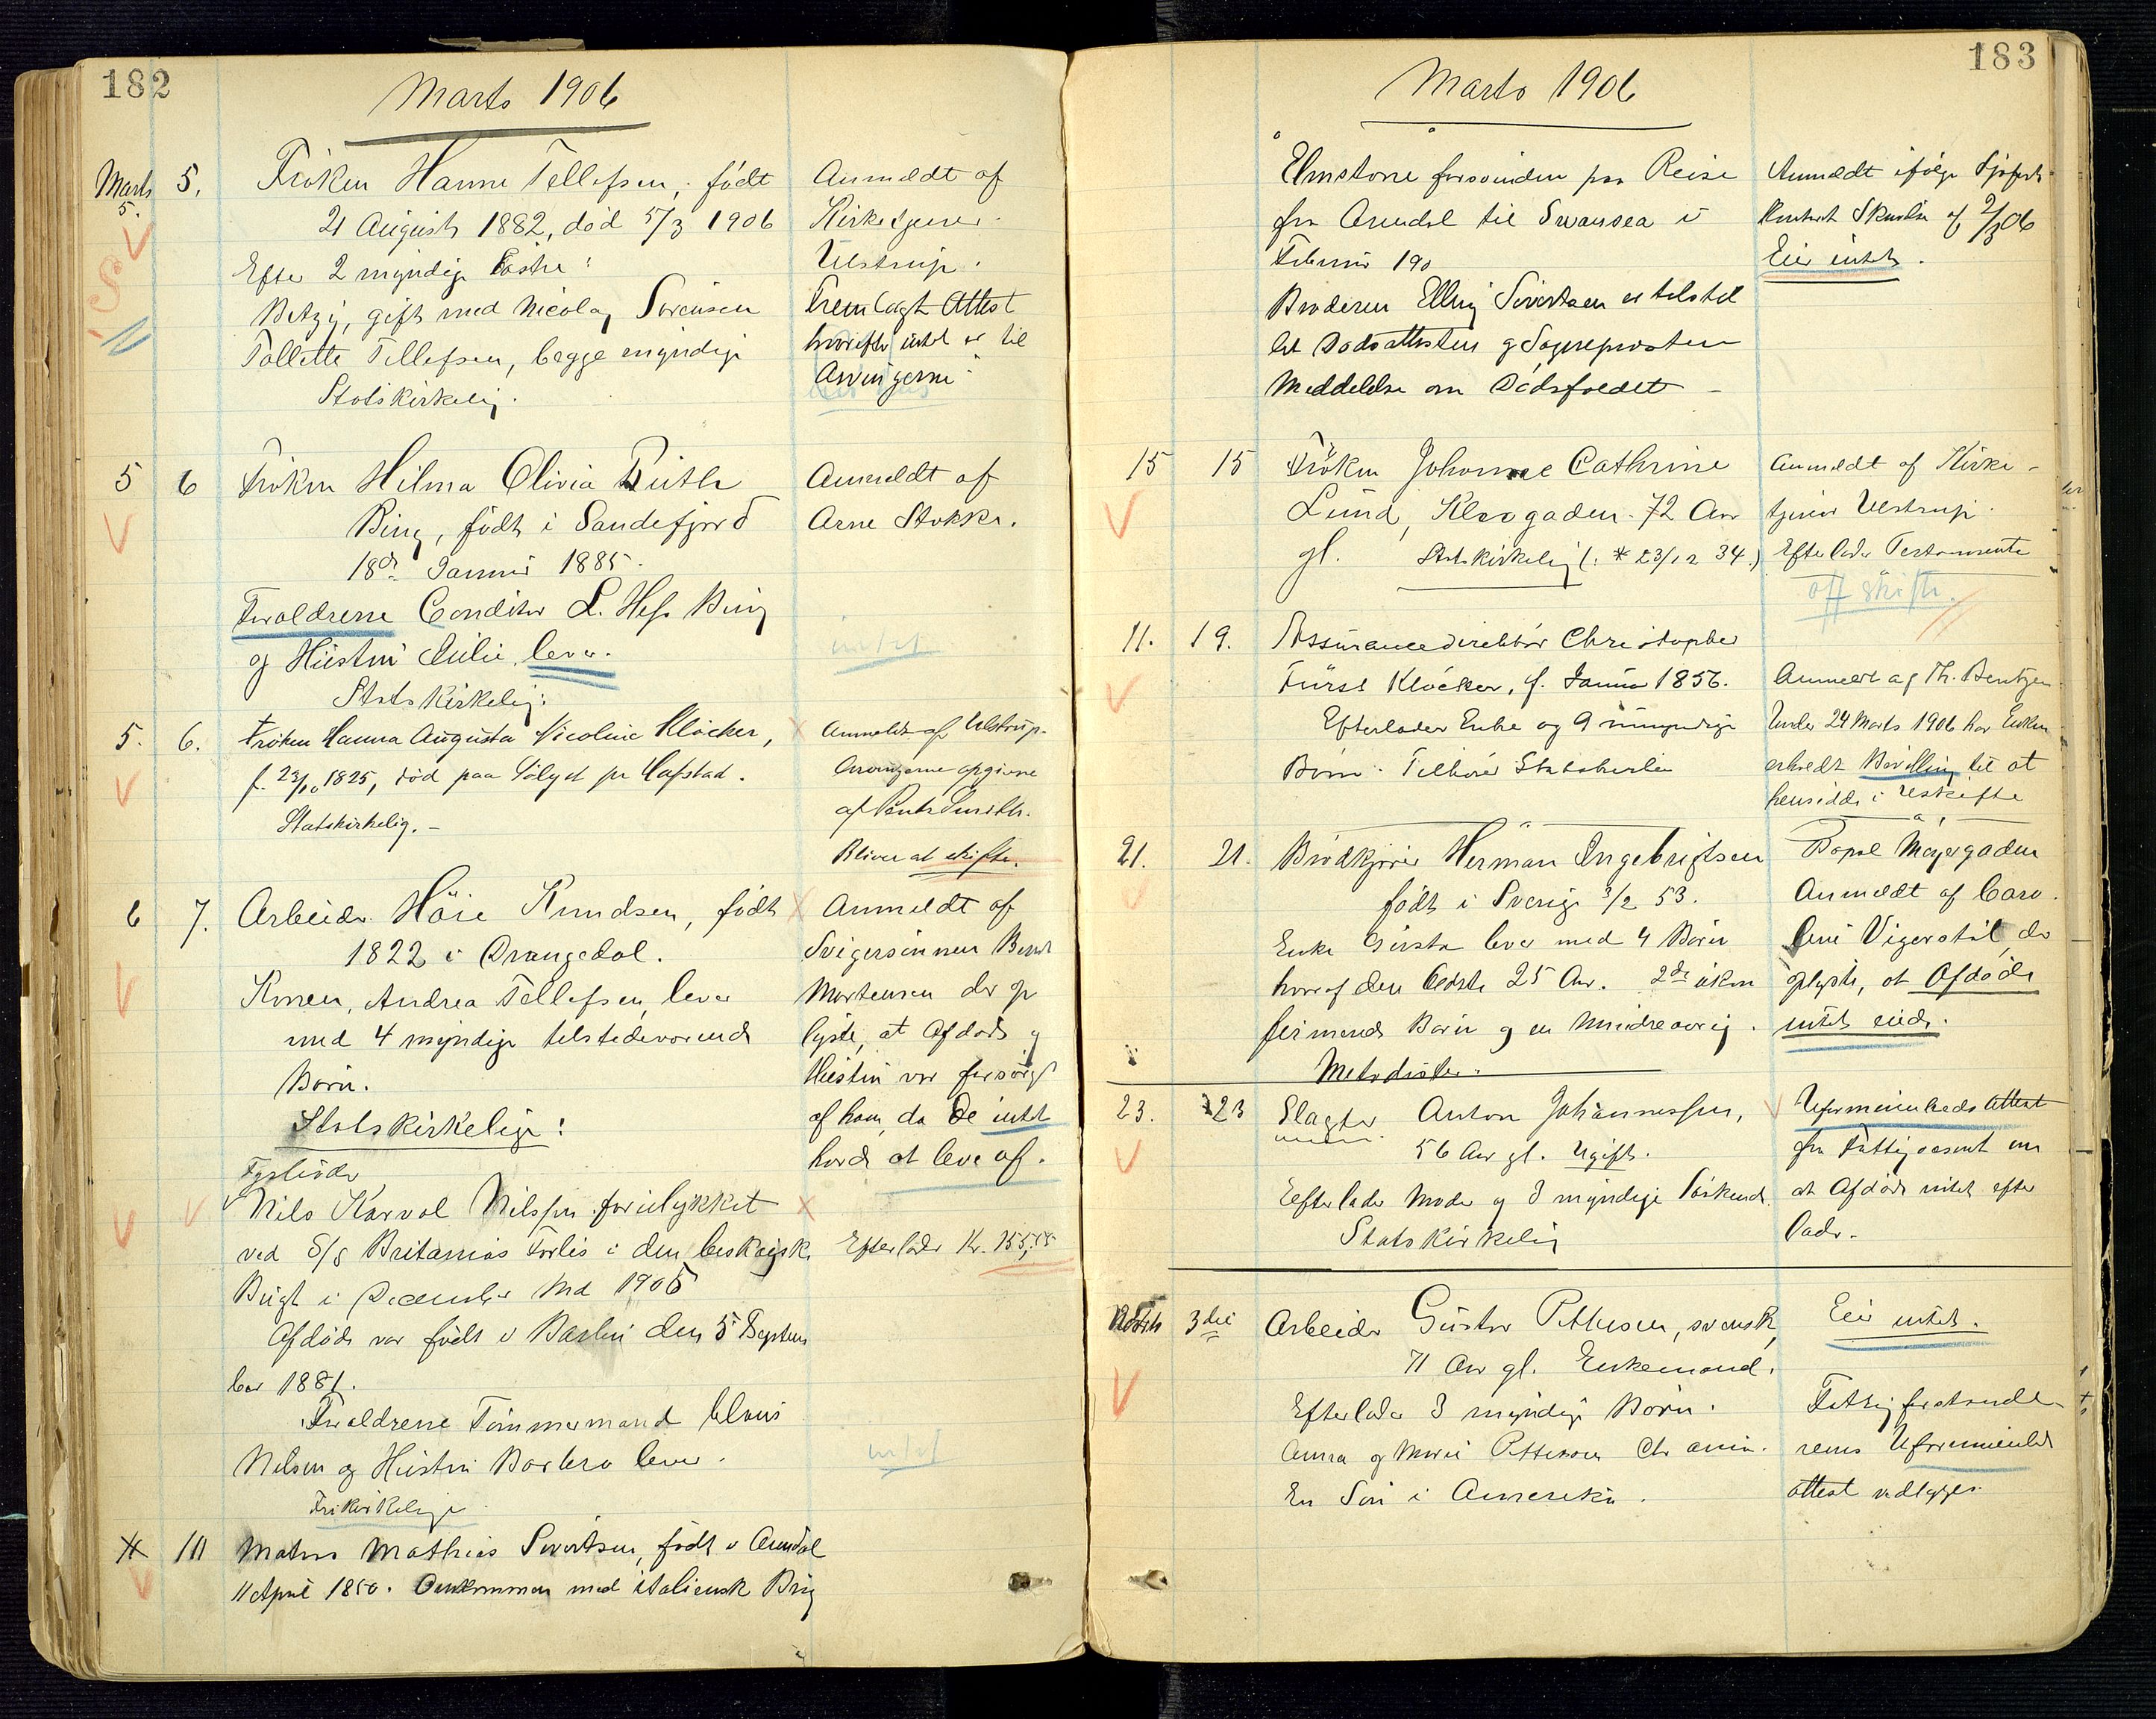 182
Marts 1906
Marts 5. Frøken Hanne Tellefsen, født
5. 21 August 1882, død 5/3 1906
Efter 2 myndige Søstre:
Betzy, gift med Nicolay Sørensen
Tollette Tellefsen, begge myndige
Statskirkelig.
Anmeldt af
Kirketjener
Ulstrup.
Fremlagt Attest
hvorefter intet er til
Arvingerne
5 6 Frøken Hilma Olivia Ruth
Bing, født i Sandefjord
18de Januar 1885.
Forældrene Conditor L. Hess Bing
og Hustru Julie lever.
Statskirkelig.
Anmeldt af
Arne Stokke.
intet
5. 6. Frøken Hanna Augusta Nicoline Kløcker,
f. 23/10 1825, død paa Sølyst pr Hafstad.
Statskirkelig. -
Anmeldt af Ulstrup.
Arvingerne opgives
af Smith.
Bliver at skifte.
6 7. Arbeider Høie Knudsen, født
1822 i Drangedal.
Konen, Andrea Tellefsen, lever
med 4 myndige tilstedeværende
Børn.
Statskirkelige:
Anmeldt af
Svigersønnen Bernt
Mortensen der op
lyste, at Afdøde og
Hustru var forsørget
af ham, da De intet
havde at leve af.
Fyrbøder
Nils Karvel Nilssen forulykket
ved S/S Britanias Forlis i den beskayiske
Bugt i December Md 1905
Afdøde var født i Barbu den 5 Septem
ber 1881.
Forældrene Tømmermand Claus
Nilsen og Hustru Barbro lever.
Frikirkelige
Efterlader Kr. 155,
intet
11 Matros Mathias Sivertsen, født i Arendal
11 April 1850. Omkommen med italiensk Brig
183
Marts 1906
Elmstone forsvinden paa Reise
fra Arendal til Swansea i
Februar 190
Broderen Elling Sivertsen er tilstel
let Dødsattesten og Sogneprestens
Meddelelse om Dødsfaldet -
Anmeldt ifølge Sjøfarts
Kontoret Skrivelse af 2/3 06
Eier intet.
15 15 Frøken Johanne Cathrine
Lund, Klovgaden. 72 Aar
gl. Statskirkelig (: * 23/12 34.)
Anmeldt af Kirke-
tjener Ulstrup.
Efterlader Testamente
off skifte.
11. 19. Assurancedirektør Christopher
Fürst Kløcker, f. Januar 1856.
Efterlader Enke og 9 umyndige
Børn. Tilhører Statskirken
Anmeldt af Th. Bentzen
Under 24 Marts 1906 har Enken
erholdt Bevilling til at
hensidde i uskifte
21. 21. Brødkjører Herman Ingebrigtsen
født i Sverige 3/2 53.
Enke Gusta lever med 4 Børn
hvoraf den ældste 25 Aar. 2de ukon
firmerede Børn og en Mindreaarig.
Metodister.
Bopæl Møjergaden
Anmeldt af Caro
line Vigerstøl, der
oplyste, at Afdøde
intet eiede.
23. 23 Slagter Anton Johannessen,
56 Aar gl. Ugift.
Efterlader Moder og 3 myndige Søskende.
Statskirkelig
Uformuenheds Attest
fra Fattigvæsenet om
at Afdøde intet efter
lader.
Marts 3die Arbeider Gustav Pettersen, svensk,
71 Aar gl. Enkemand.
Efterlader 3 myndige Børn.
Anna og Marie Pettersen Chr ania.
En Søn i Amerika.
Eier intet.
Fattigforstande
rens Uformuenheds
attest vedlægges.